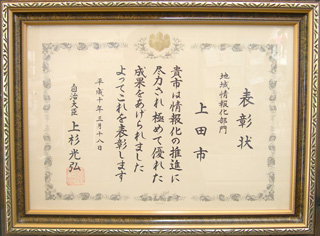 表彰状
地域情報化部門
上田市
貴市は情報化の推進に
尽力され極めて優れた
成果をあげられました
よってこれを表彰します
平成十年三月十八日
自治大臣 上杉光弘